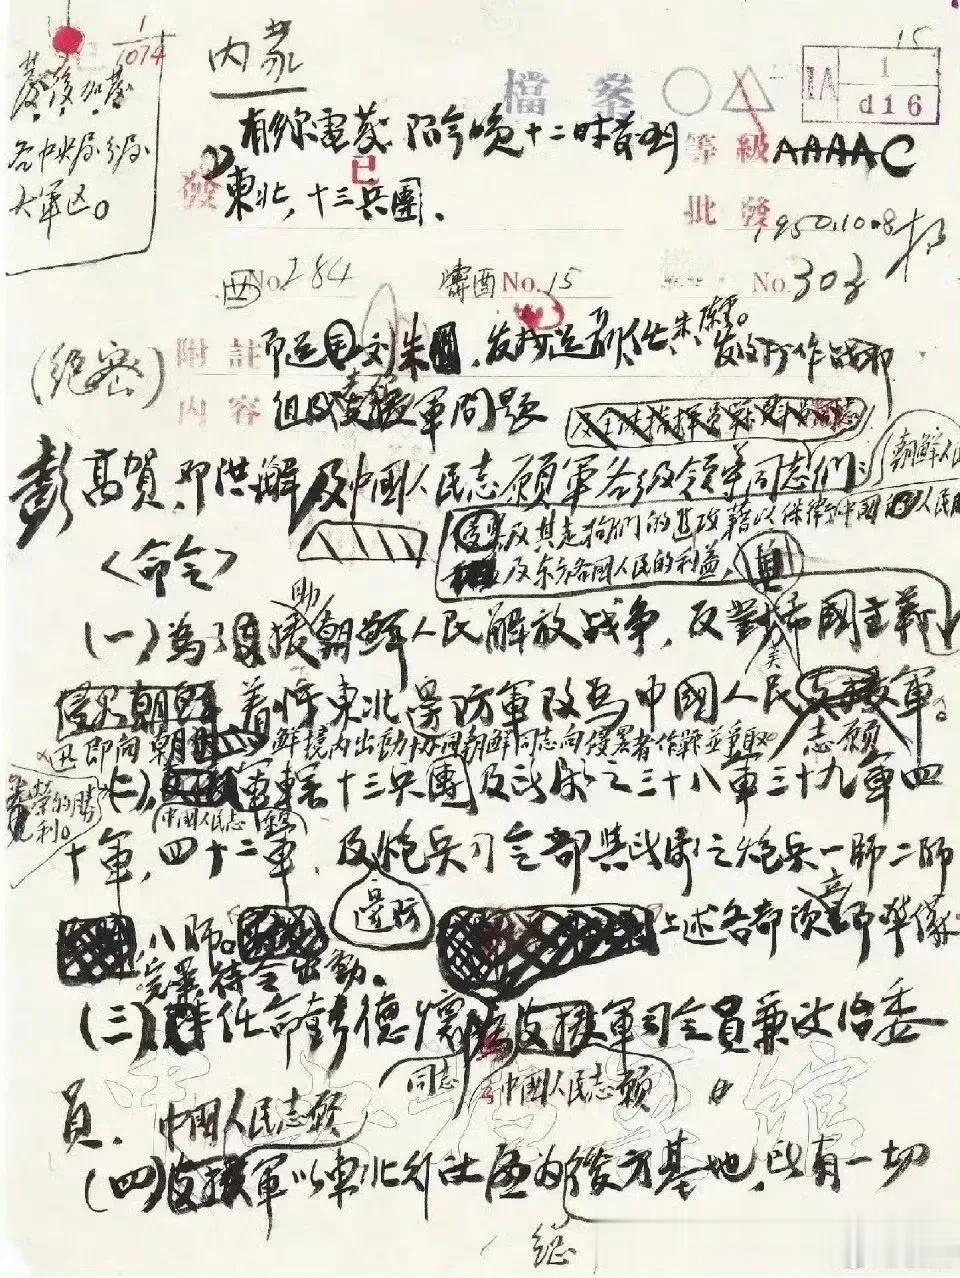 1/1074
發後加發
各中央局,分局,
大軍区。
内蒙
檔案
15
IA 1 d16
有線電發,限今晚十二时前到
東北,十三兵團.
發
已
等級 AAAAC
批發 1950.10.8
No. 284
No. 15
No. 303
(绝密)
附註 即送 刘朱 发
内容 组成支援軍問題
彭高賀、邓洪解及中國人民志願軍各級領導同志們:
朝鮮人民
及其走狗們的進攻,藉以保衛中國人民
及东方各國人民的利益,
<命令>
(一)為了援助朝鮮人民解放战争,反對美帝國主義
侵犯朝鮮 着将東北邊防軍改為中國人民志願軍。
迅即向朝鮮境内出動協同朝鮮同志向侵畧者作戰並爭取
光榮的勝利。
(二)中國人民志願軍轄十三兵團及所屬之三十八軍三十九軍四
十軍,四十二軍,及邊防炮兵司令部與所屬之炮兵一師二師
八師。上述各部须立即準備
完畢,待令出動。
(三)任命彭德懷同志為中國人民志願軍司令員兼政治委
員.
(四)中國人民志願軍以東北行政區為後方基地,所有一切